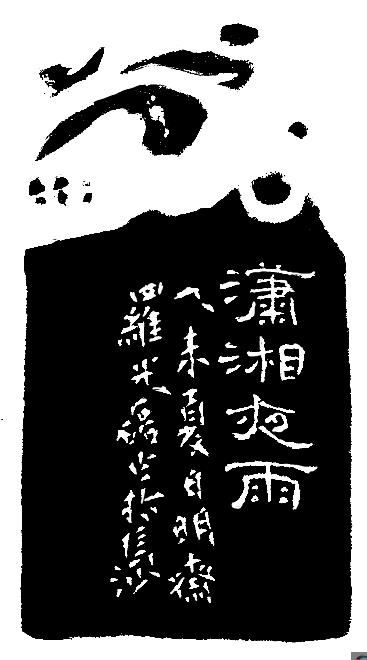 瀟湘夜雨
乙未夏自明齋
羅光磊於長沙